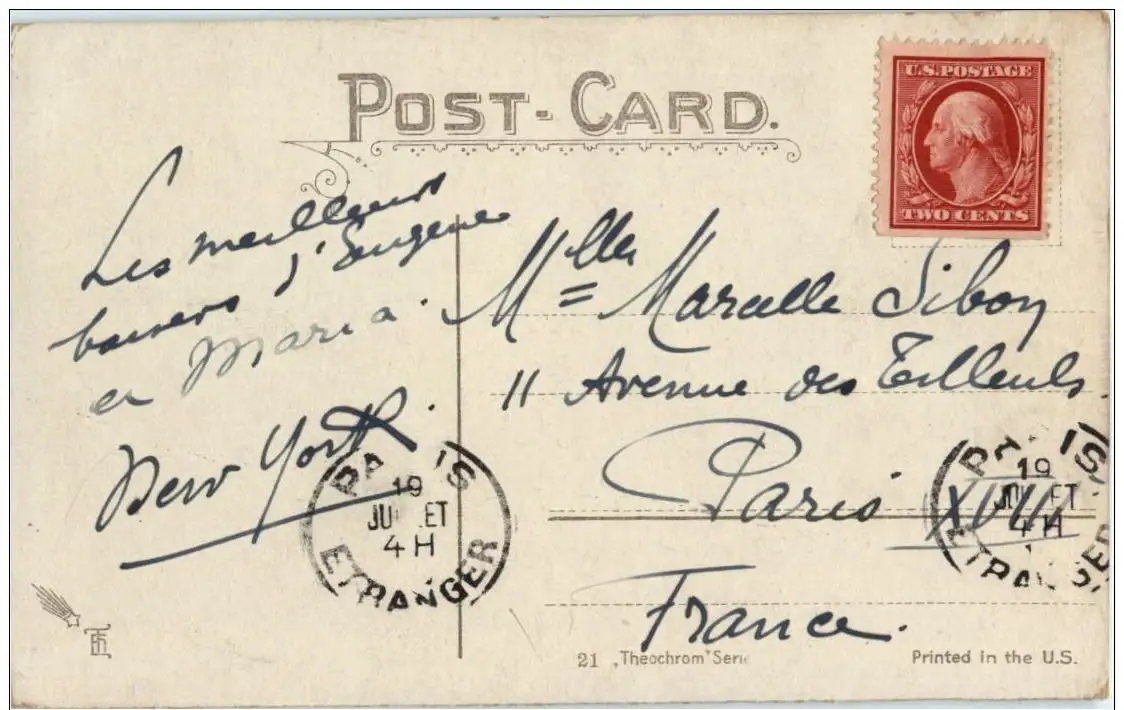 POST-CARD.
U.S. POSTAGE
TWO CENTS
Les meilleurs
baisers d'Eugène
et Maria.
New York
Mlle Marcelle Sibon
11 Avenue des Tilleuls
Paris XVIII
France.
PARIS
19
JUILLET
4 H
ETRANGER
PARIS
19
JUILLET
4 H
ETRANGER
21 „Theochrom" Serie
Printed in the U.S.